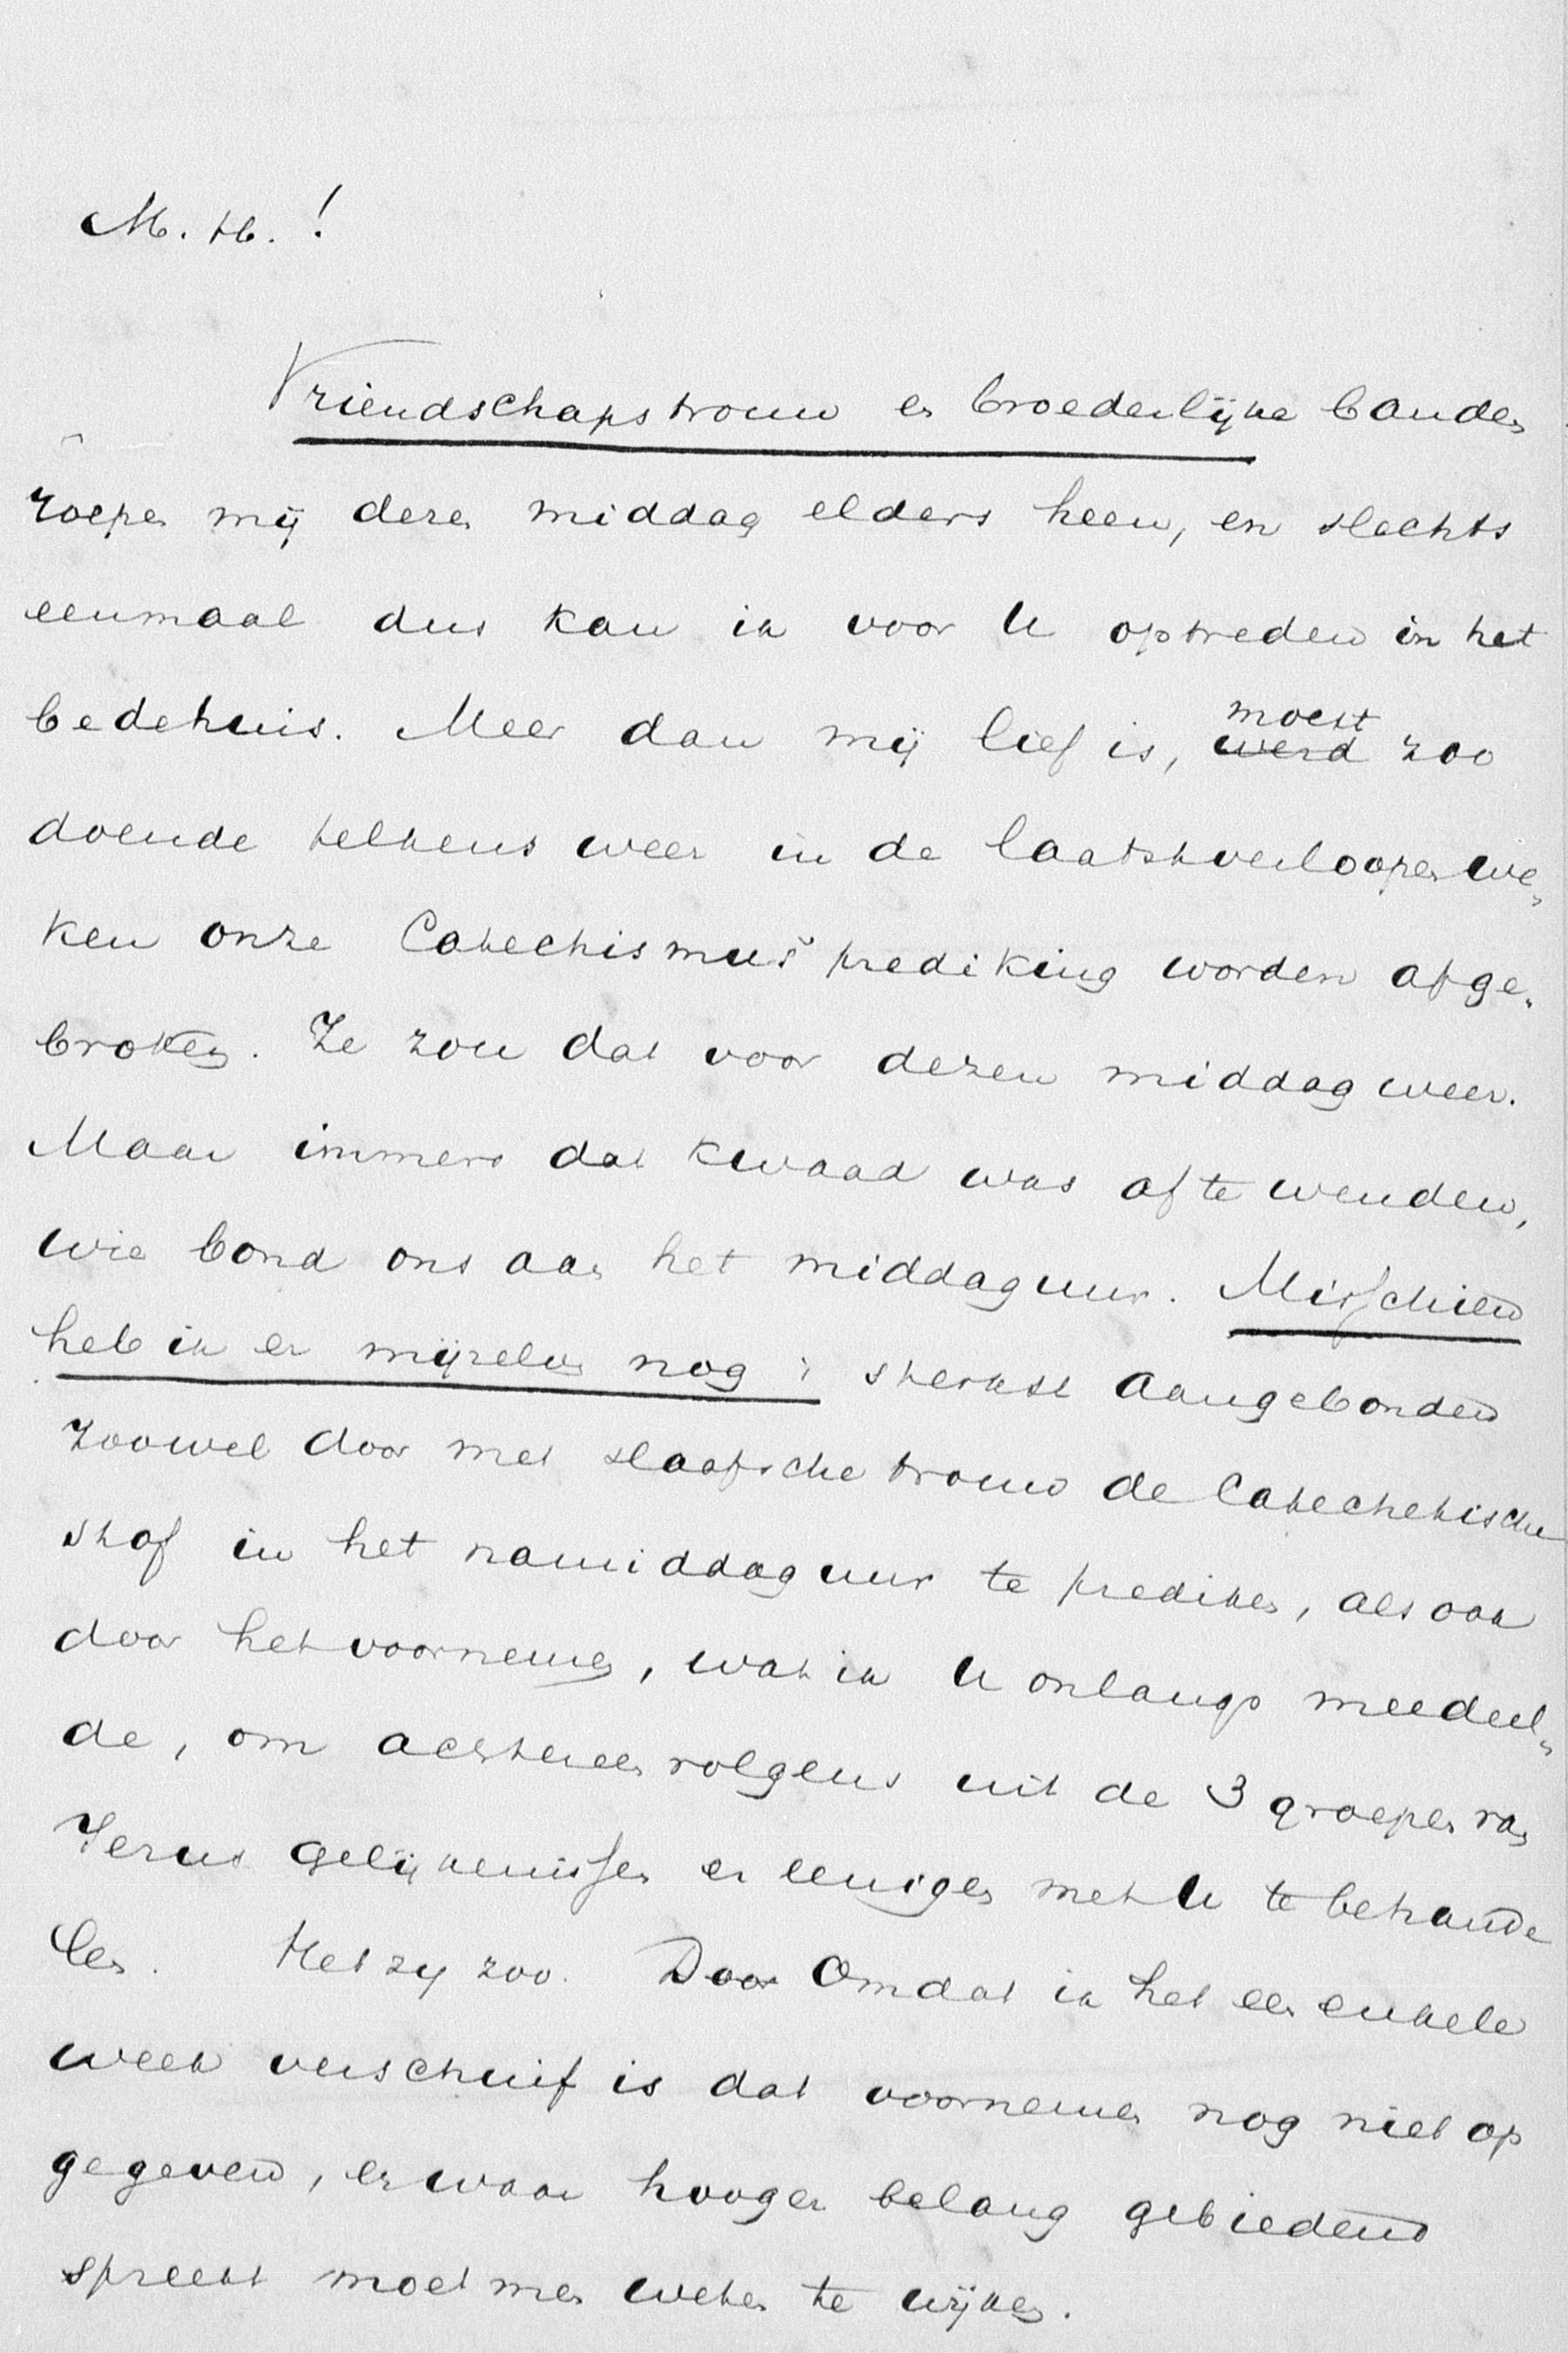 M. H. !
Vriendschapstrouw en broederlijke banden
roepen mij dezen middag elders heen, en slechts
eenmaal dus kan ik voor U optreden in het
moest
bedehuis. Meer dan mij lief is, werd zoo
doende telkens weer in de laatstverloopen we„
ken onze Catechismus prediking worden afge„
broken. Ze zou dat voor dezen middag weer.
Maar immers dat kwaad was af te wenden,
wie bond ons aan het middaguur. Misschien
heb ik er mijzelven nog 't sterkst aangebonden
zoowel door met slaafsche trouw de Catechetische
stof in het namiddaguur te prediken, als ook
door het voornemen, wat ik U onlangs meedeel„
de, om achtereenvolgens uit de 3 groepen van
Jezus gelijkenissen er eenigen met U te behande
len. Het zij zoo. Door Omdat ik het een enkele
week verschuif is dat voornemen nog niet op
gegeven, en waar hooger belang gebiedend
spreekt moet men weten te wijken.